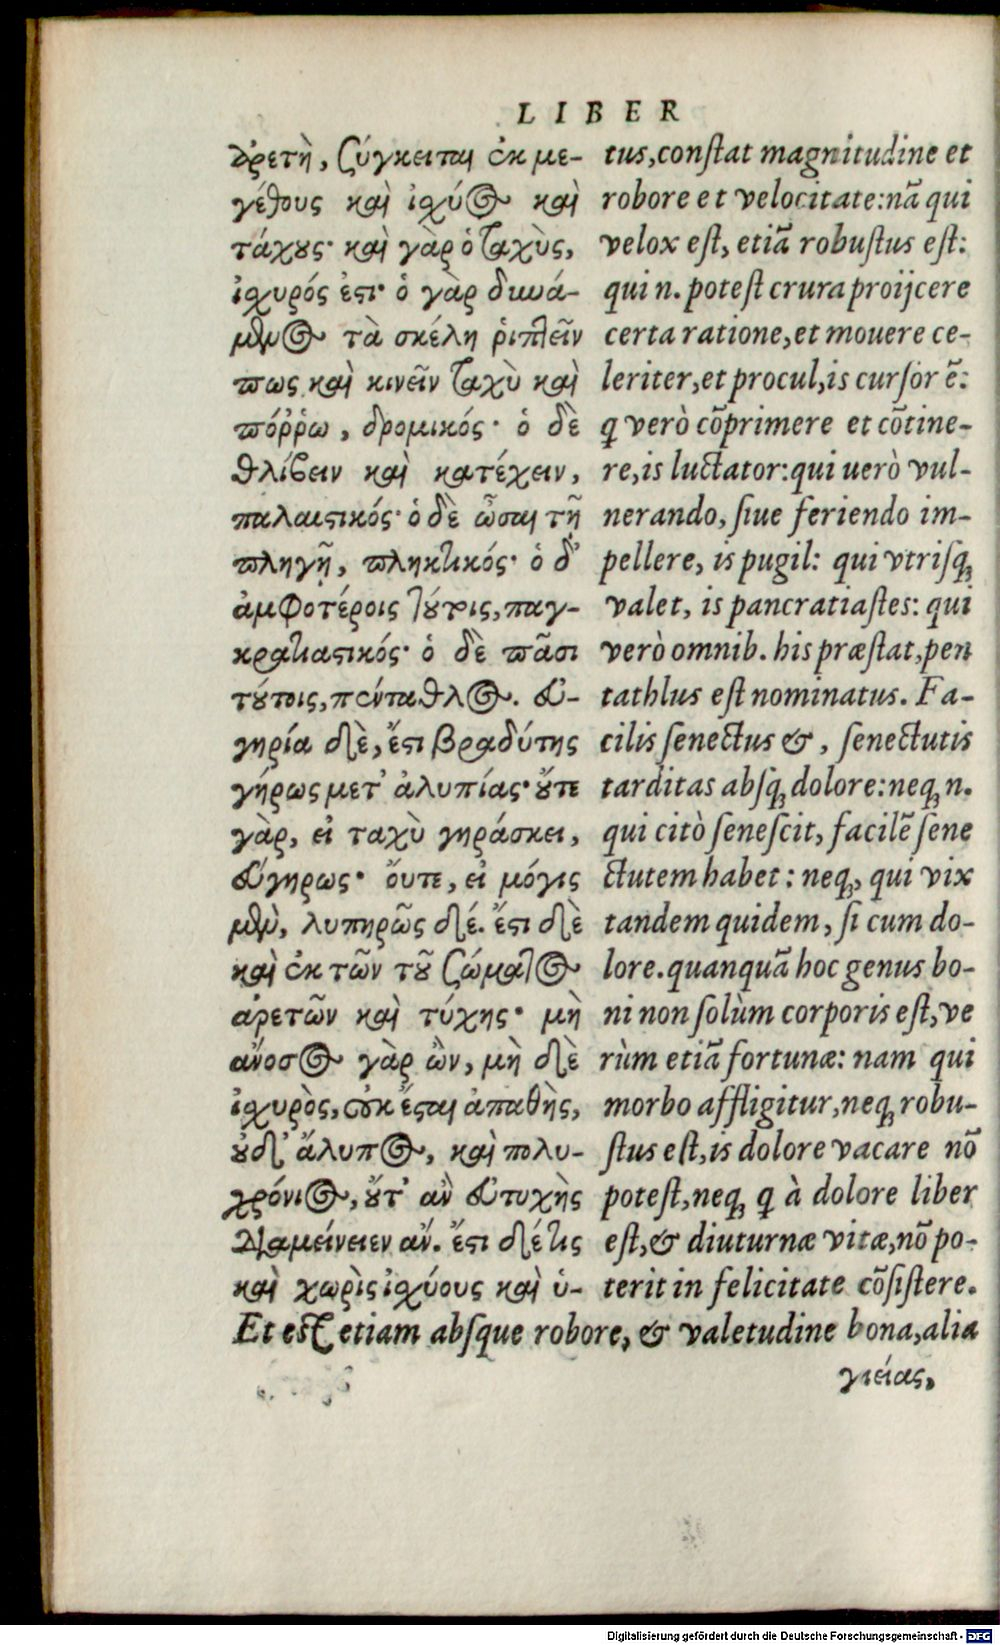 LIBER
ἀρετὴ, σύγκειται ἐκ με-
γέθους καὶ ἰσχύος καὶ
τάχους· καὶ γὰρ ὁ ταχὺς,
ἰσχυρός ἐστι· ὁ γὰρ δυνά-
μενος τὰ σκέλη ῥιπτεῖν
πως καὶ κινεῖν ταχὺ καὶ
πόῤῥω, δρομικός· ὁ δὲ
θλίβειν καὶ κατέχειν,
παλαιστικός· ὁ δὲ ὦσαι τῇ
πληγῇ, πληκτικός· ὁ δ'
ἀμφοτέροις τούτοις, παγ-
κρατιαστικός· ὁ δὲ πᾶσι
τούτοις, πένταθλος. εὐ-
γηρία δὲ, ἔστι βραδύτης
γήρως μετ' ἀλυπίας· οὔτε
γὰρ, εἰ ταχὺ γηράσκει,
εὔγηρως· οὔτε, εἰ μόγις
μὲν, λυπηρῶς δέ. ἔστι δὲ
καὶ ἐκ τῶν τοῦ σώματος
ἀρετῶν καὶ τύχης· μὴ
ἄνοσος γὰρ ὢν, μὴ δὲ
ἰσχυρὸς, οὐκ ἔσται ἀπαθὴς,
οὐδ' ἄλυπος, καὶ πολυ-
χρόνιος, οὔτ' ἂν εὐτυχὴς
διαμείνειεν ἄν. ἔστι δέ τις
καὶ χωρὶς ἰσχύους καὶ ὑ-
tus, constat magnitudine et
robore et velocitate: nã qui
velox est, etiã robustus est:
qui n. potest crura proijcere
certa ratione, et mouere ce-
leriter, et procul, is cursor ẽ:
q verò cõprimere et cõtine-
re, is luctator: qui uerò vul-
nerando, siue feriendo im-
pellere, is pugil: qui vtrisq;
valet, is pancratiastes: qui
verò omnib. his præstat, pen
tathlus est nominatus. Fa-
cilis senectus &, senectutis
tarditas absq; dolore: neq; n.
qui citò senescit, facilẽ sene
ctutem habet: neq;, qui vix
tandem quidem, si cum do-
lore. quanquã hoc genus bo-
ni non solùm corporis est, ve
rùm etiã fortunæ: nam qui
morbo affligitur, neq; robu-
stus est, is dolore vacare nõ
potest, neq; q à dolore liber
est, & diuturnæ vitæ, nõ po-
terit in felicitate cõsistere.
Et est etiam absque robore, & valetudine bona, alia
γιείας,
Digitalisierung gefördert durch die Deutsche Forschungsgemeinschaft - DFG